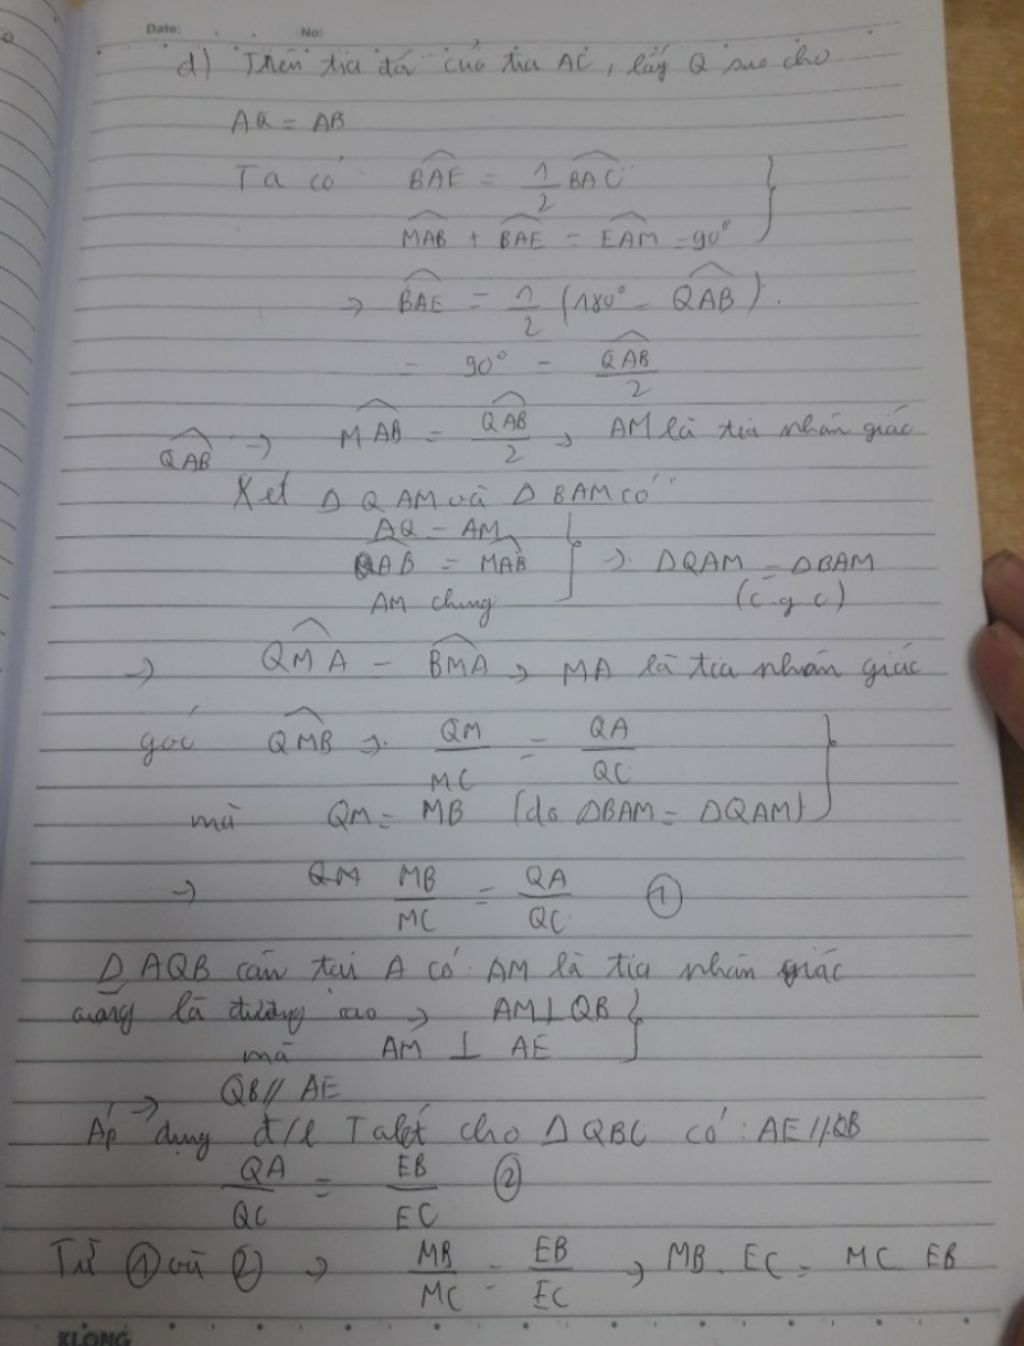 Date: No:
d) Trên tia đối của tia AC, lấy Q sao cho
AQ = AB
Ta có BAE = 1/2 BAC
MAB + BAE = EAM = 90°
→ BAE = 1/2 (180° - QAB).
= 90° - QAB/2
QAB → MAB = QAB/2 → AM là tia nhân giác
Xét Δ QAM và Δ BAM có
AQ = AM
QAB = MAB → ΔQAM = ΔBAM
AM chung (c.g.c)
→ QMA = BMA → MA là tia nhân giác
góc QMB → QM/MC = QA/QC
mà QM = MB (do ΔBAM = ΔQAM)
→ QM MB/MC = QA/QC ①
Δ AQB cân tại A có AM là tia nhân giác
cũng là đường cao → AM⊥QB
mà AM ⊥ AE
→ QB // AE
Áp dụng đ/l Talét cho Δ QBC có : AE // QB
QA/QC = EB/EC ②
Từ ① và ② → MB/MC = EB/EC → MB. EC = MC EB
KLONG